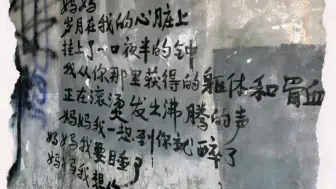 妈妈
岁月在我的心脏上
挂上了一口夜半的钟
我从你那里获得的躯体和冒血
正在滚烫发生沸腾的声
妈妈我一想到你就醉了
妈妈我要睡了
妈妈我想你